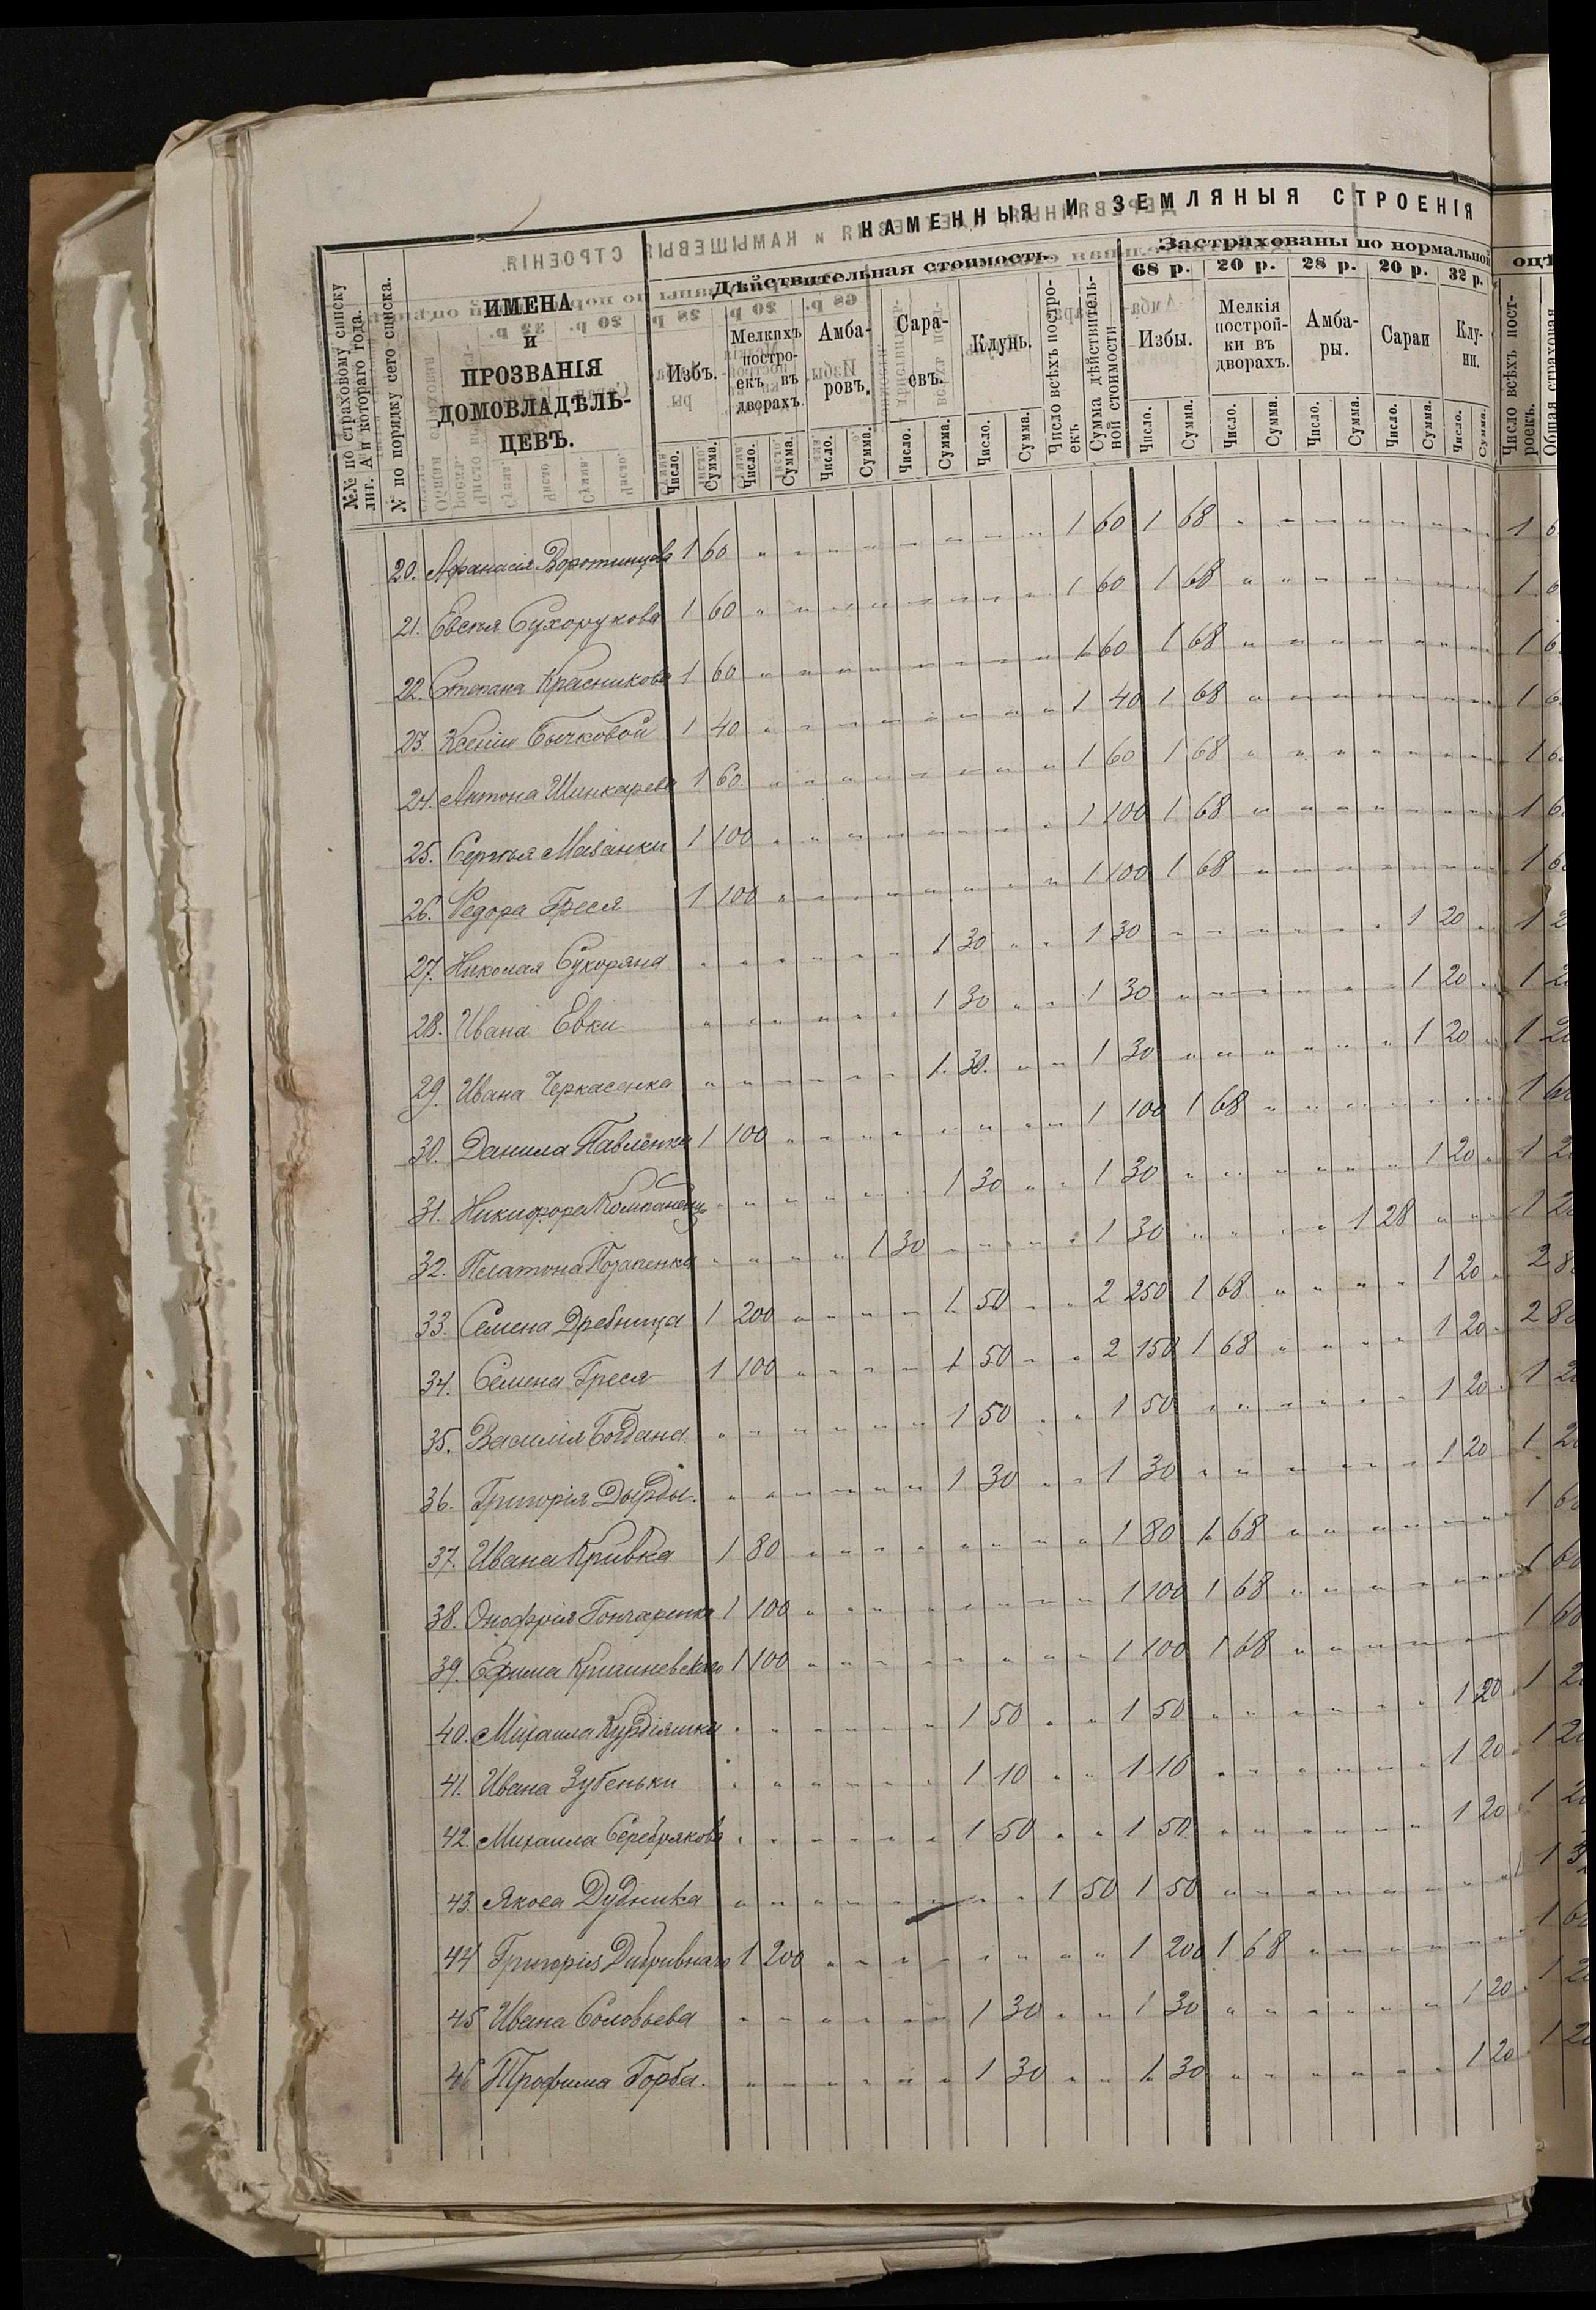 КАМЕННЫЯ И ЗЕМЛЯНЫЯ СТРОЕНІЯ
Дѣйствительная стоимость.
Застрахованы по нормальной
оцѣ
№№ по страховому списку
лит. А и котораго года.
№ по порядку сего списка.
ИМЕНА
и
ПРОЗВАНІЯ
ДОМОВЛАДѢЛЬ-
ЦЕВЪ.
Избъ.
Мелкихъ
постро-
екъ въ
дворахъ
Амба-
ровъ.
Сара-
евъ.
Клунь.
Число всѣхъ постро-
екъ
Сумма дѣйствитель-
ной стоимости
68 р. 20 р. 28 р. 20 р. 32 р.
Избы.
Мелкія
построй-
ки въ
дворахъ.
Амба-
ры.
Сараи
Клу-
ни.
Число всѣхъ пост-
роекъ.
Общая страховая
Число. Сумма. Число. Сумма. Число. Сумма. Число. Сумма. Число. Сумма. Число. Сумма. Число. Сумма. Число. Сумма. Число. Сумма. Число. Сумма.
20. Афанасія Воротинцова 1 60 " " " " " " " " 1 60 1 68 " " " " " " " " 1 6
21. Евсея Сухорукова 1 60 " " " " " " " " 1 60 1 68 " " " " " " " " 1 6
22. Степана Красникова 1 60 " " " " " " " " 1 60 1 68 " " " " " " " " 1 6
23. Ксеніи Бычковой 1 40 " " " " " " " " 1 40 1 68 " " " " " " " " 1 6
24. Антона Шинкарева 1 60 " " " " " " " " 1 60 1 68 " " " " " " " " 1 6
25. Сергѣя Мазанки 1 100 " " " " " " " " 1 100 1 68 " " " " " " " " 1 6
26. Ѳедора Греся 1 100 " " " " " " " " 1 100 1 68 " " " " " " " " 1 6
27. Николая " " " " " " 1 30 " " 1 30 " " " " " " 1 20 " 1 2
28. Ивана Евки " " " " " " 1 30 " " 1 30 " " " " " " 1 20 " 1 2
29. Ивана Черкасенка " " " " " " 1. 30. " " 1 30 " " " " " " 1 20 " 1 20
30. Данила Павленка 1 100 " " " " " " " " 1 100 1 68 " " " " " " " " 1 6
31. Никифора Компанейц " " " " " " 1 30 " " 1 30 " " " " " " 1 20 " 1 2
32. Платона " " " " 1 30 " " " " 1 30 " " " " 1 28 " " " 1 2
33. Семена Дребница 1 200 " " " " 1 50 " " 2 250 1 68 " " " " 1 20 " 2 8
34. Семена Греся 1 100 " " " " 1 50 " " 2 150 1 68 " " " " 1 20 " 2 8
35. Василія Богдана " " " " " " 1 50 " " 1 50 " " " " " " 1 20 " 1 2
36. Григорія Дырды. " " " " " " 1 30 " " 1 30 " " " " " " 1 20 1 2
37. Ивана Кривка 1 80 " " " " " " " " 1 80 1 68 " " " " " " " " 1 6
38. Онофрія Гончаренка 1 100 " " " " " " " " 1 100 1 68 " " " " " " " " 1 6
39. Ефима 1 100 " " " " " " " " 1 100 1 68 " " " " " " " " 1 6
40. Михаила " " " " " " 1 50 " " 1 50 " " " " " " 1 20 1 2
41. Ивана Зубеньки " " " " " " 1 10 " " 1 10 " " " " " " 1 20 " 1 2
42. Михаила Серебрякова " " " " " " 1 50 " " 1 50 " " " " " " 1 20 1 2
43. Якова Дудника " " " " " " " " 1 50 1 50 " " " " " " " " 1 3
44 Григорія 1 200 " " " " " " " " 1 200 1 68 " " " " " " 1 6
45 Ивана Соловьева " " " " " " 1 30 " " 1 30 " " " " " " 1 20 1 2
46 Трофима Горба. " " " " " " 1 30 " " 1 30 " " " " " " 1 20 1 2